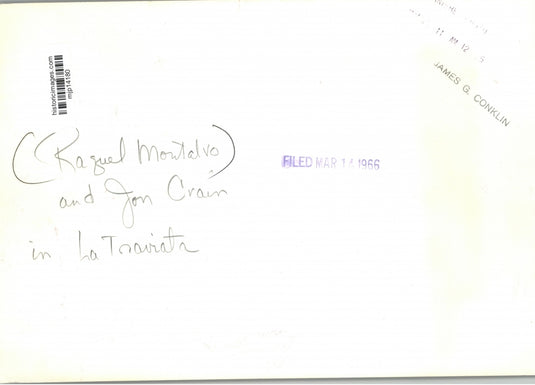 historicimages.com
mjp14180
JAMES G. CONKLIN
(Raquel Montalvo)
and Jon Crain
in La Traviata
FILED MAR 14 1966